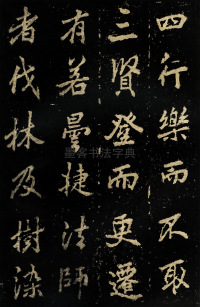 四行樂而不取
三賢登而更遷
有若曇捷法師
者伐林及樹染
墨客书法字典